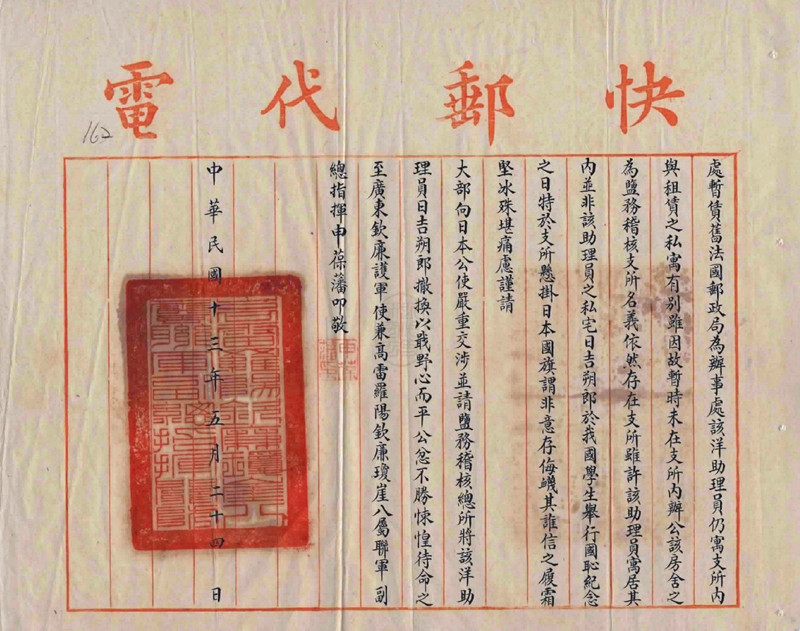 快郵代電
處暫賃舊法國郵政局為辦事處該洋助理員仍寓支所內
與租賃之私寓有別雖因故暫時未在支所內辦公該房舍之
為鹽務稽核支所名義依然存在支所雖許該助理員寓居其
內並非該助理員之私宅日吉朔郎於我國學生舉行國恥紀念
之日特於支所懸掛日本國旗謂非意存侮蟣其誰信之履霜
堅冰殊堪痛慮謹請
大部向日本公使嚴重交涉並請鹽務稽核總所將該洋助
理員日吉朔郎撤換以戢野心而平公忿不勝悚惶待命之
至廣東欽廉護軍使兼高雷羅陽欽廉瓊崖八屬聯軍副
總指揮申葆藩叩敬
中華民國十三年五月二十四日
162